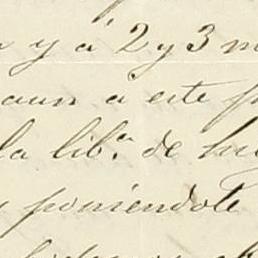 y á 2 y 3 m
aun á este p
la lib.ª de
y poniéndote